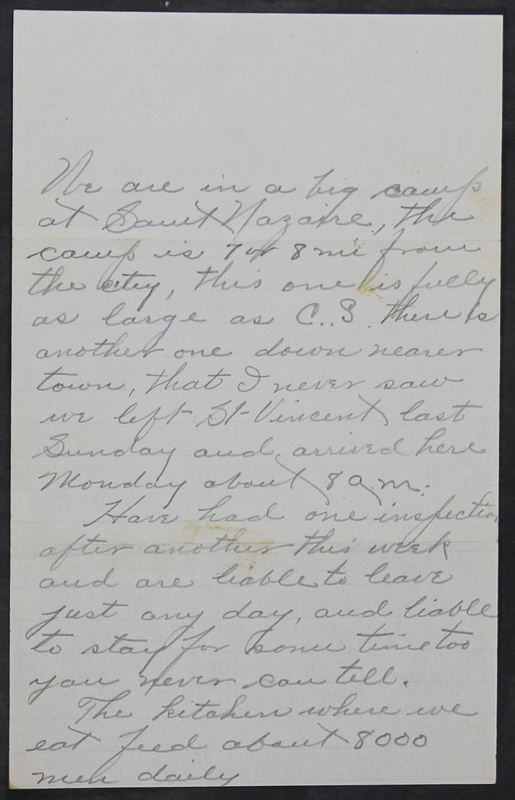 We are in a big camp
at Saint Nazaire, the
camp is 7 or 8 mi from
the city, this one is fully
as large as C.. S. there is
another one down nearer
town, that I never saw
we left St Vincent last
Sunday and arrived here
Monday about 8 a.m.
Have had one inspection
after another this week
and are liable to leave
just any day, and liable
to stay for some time too
you never can tell.
The kitchen where we
eat feed about 8000
men daily